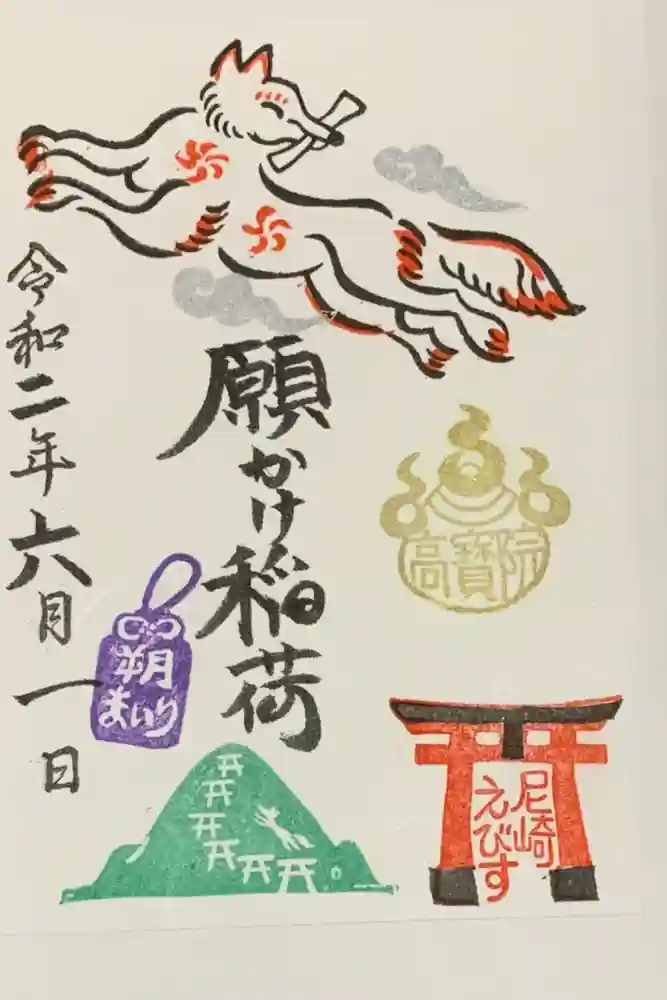 高寳院
尼崎
えびす
願かけ稲荷
朔
まいり
令和二年六月一日